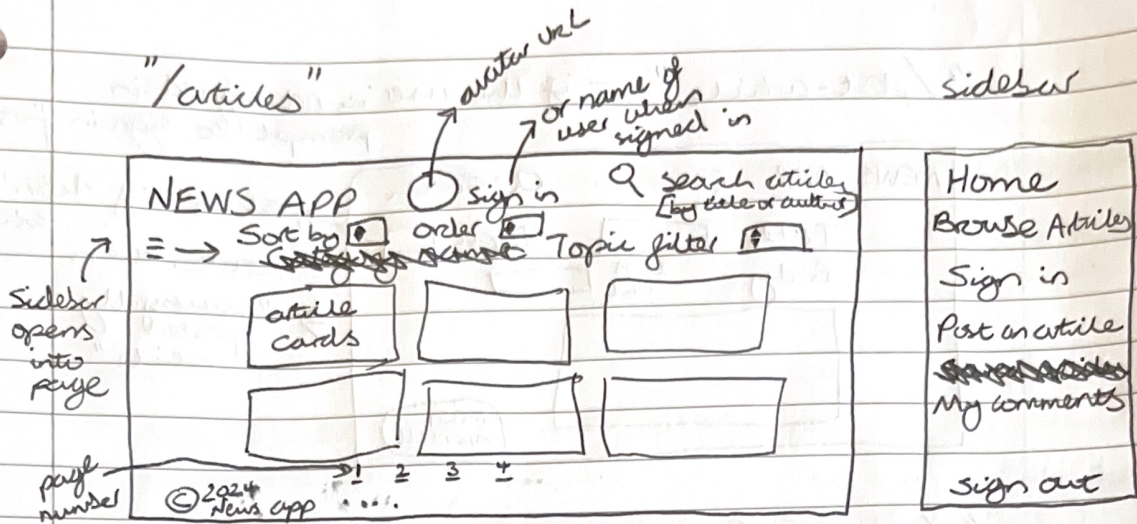 "/articles"
avatar URL
or name of
user when
signed in
sidebar
NEWS APP
sign in
search articles
[by title or author]
Sort by
order
Topic filter
Sidebar
opens
into
page
article
cards
page
number
1 2 3 4
© 2024
News app
....
Home
Browse Articles
Sign in
Post an article
My comments
sign out